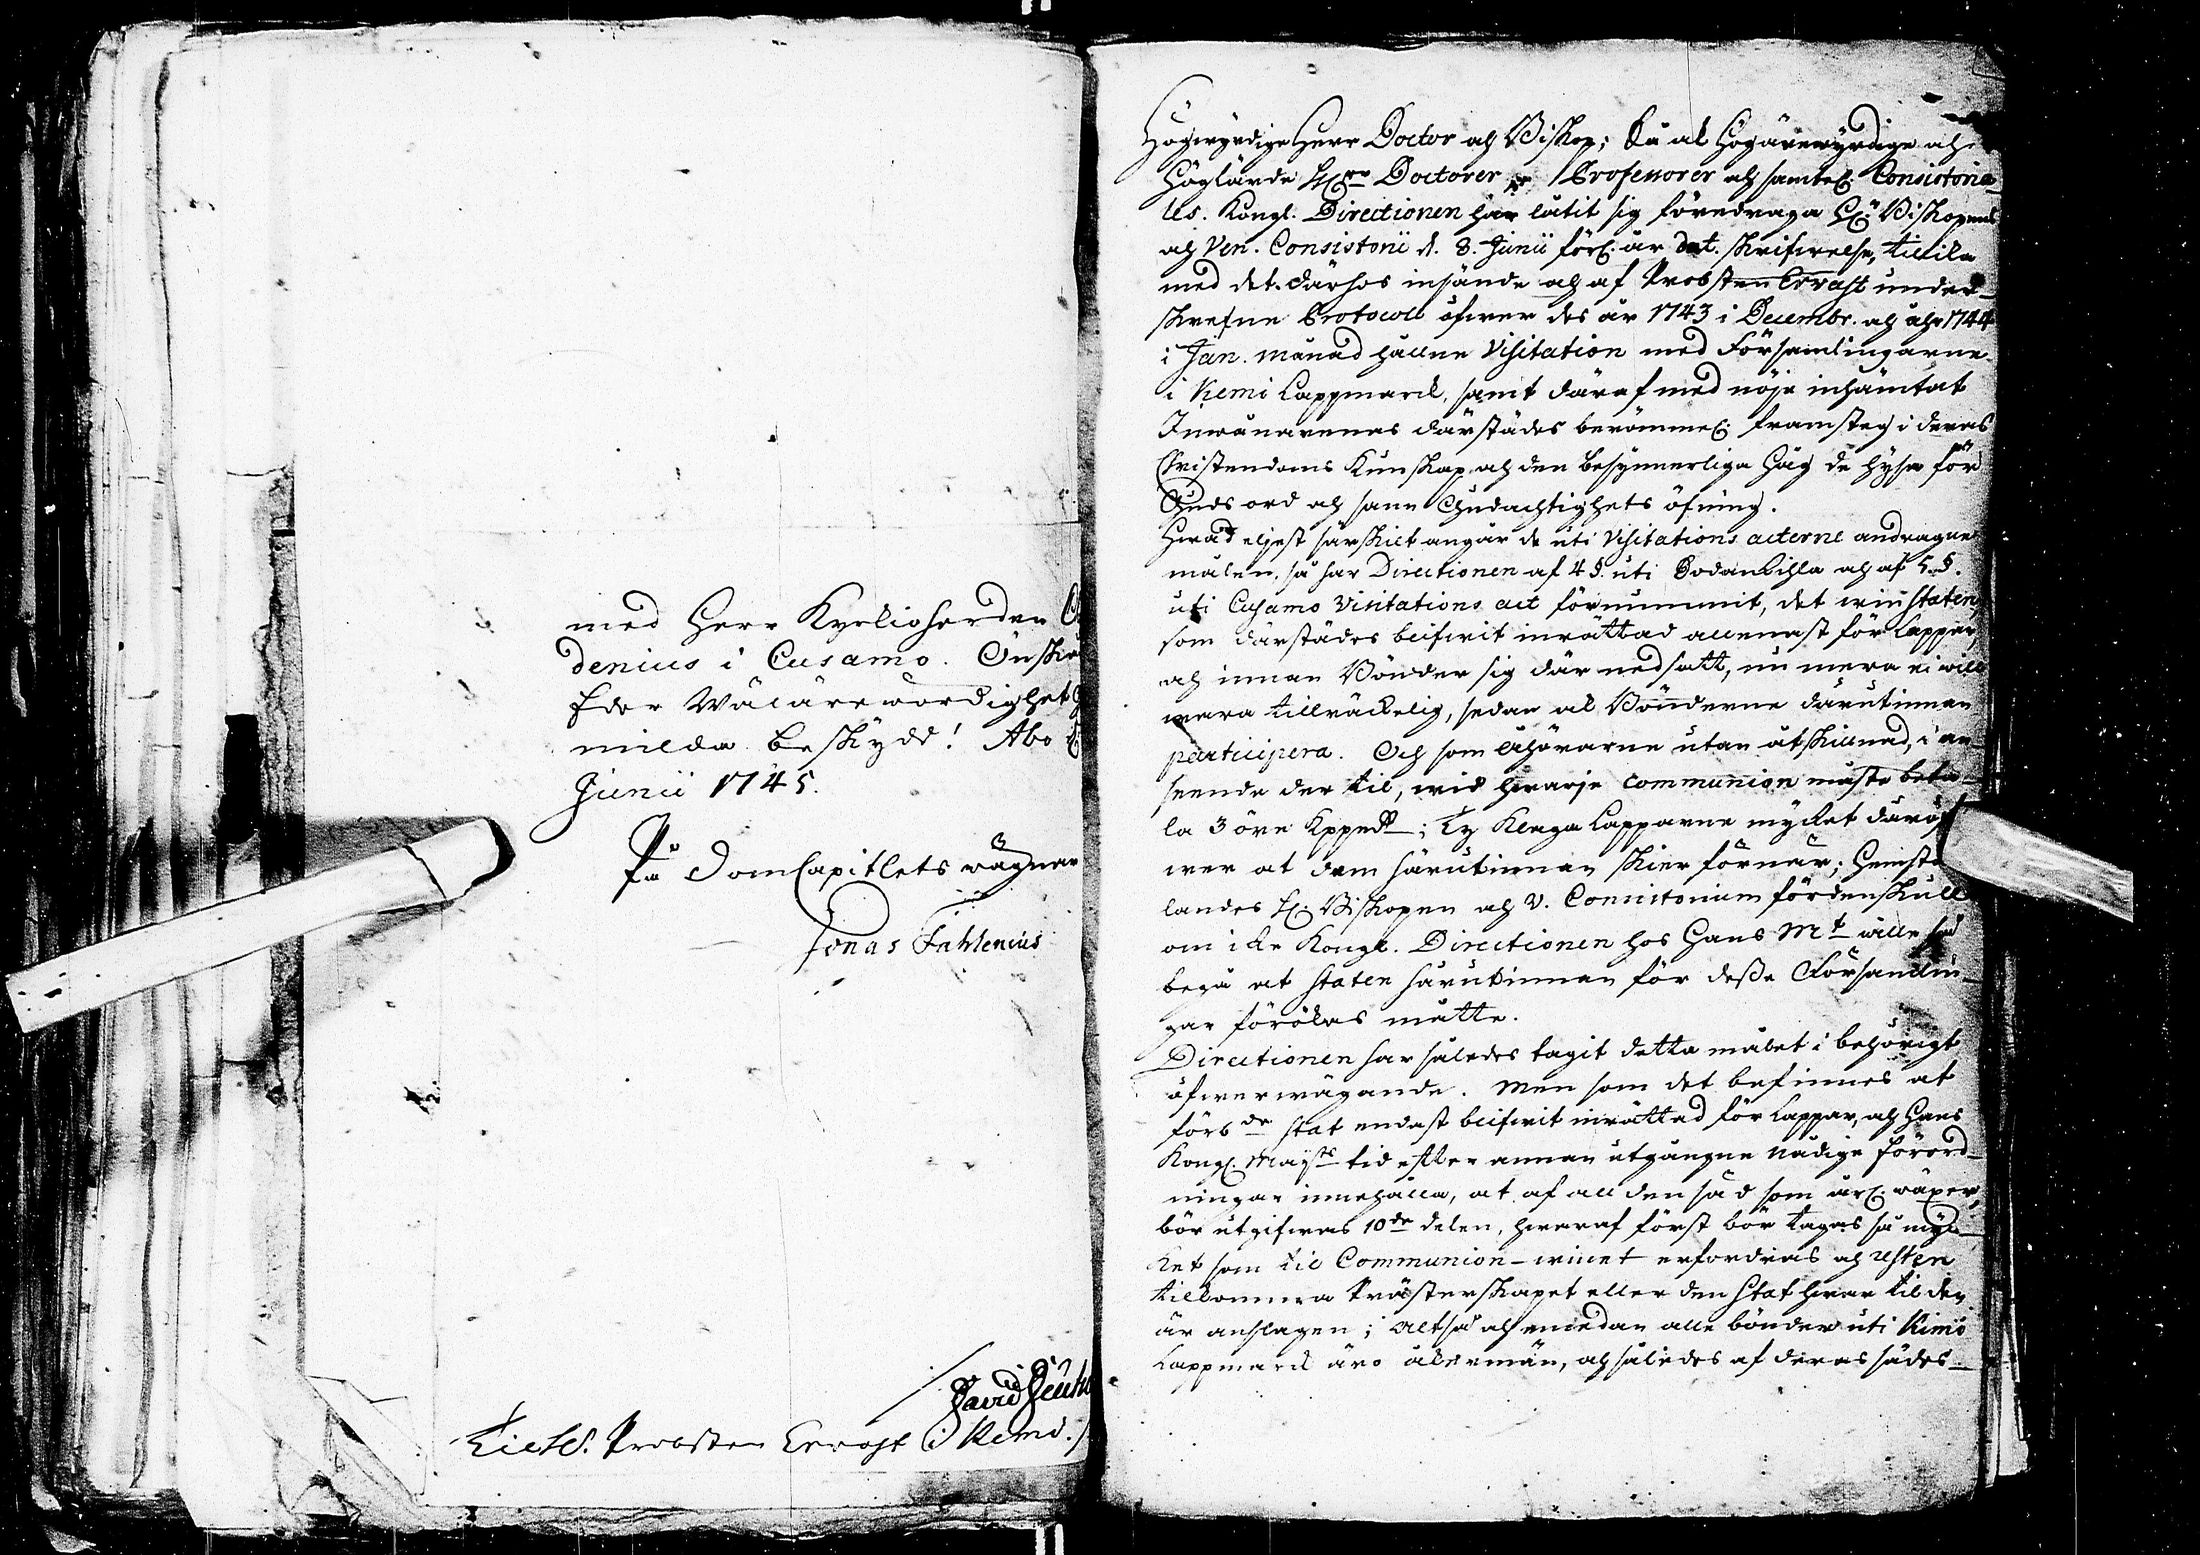 med Herr Kyrkioherden
denius i Cusamo. Önskar
Eder Wälärewördighet
milda beskydd! Abo
Junii 1745.
På DomCapitlets wägnar
Jonas Fahlenius
David Deuts
Till H. Probsten Ervast i Kemi.
Högwyrdige Herr Doctor och Biskop; Så ock Högärewyrdige och
Höglärde Hrr Doctorer Professorer och samtel. Consistoria-
les. Kongl. Directionen har låtit sig föredraga Hr Biskopens
och Ven. Consistorii d. 8. Junii förl. år dat. skrifwelse, tillika
med det därhos insände och af Probsten Ervast under-
skrefne Protocoll öfwer des år 1743 i Decembr. och åhr 1744
i Jan. månad hållne Visitation med Församlingarne
i Kemi Lappmarck, samt däraf med nöje inhämtat
Inwånarenas därstädes berömmel. framsteg i deras
Christendoms Kunskap och den besynnerliga håg de hysa för
Guds ord och sann Gudachtighets öfning.
Hwad eljest särskilt angår de uti Visitations acterne andragne
målen, så har Directionen af 4 §. uti Sodankylä och af 5. §.
uti Cusamo Visitations act förnummit, det winstaten
som därstädes blifwit inrättad allenast för Lappar,
och innan Bönder sig där nedsatt, nu mera ei will
wara tillräckelig, sedan ock Bönderne därutinnan
participera. Och som åhörarne utan åtskillnad, i an-
seende der til, wid hwarje communion måste beta-
la 3 öre Kppmt; Ty klaga Lapparne mycket daröf-
wer at dem härutinnan skier förnär; Hemstäl-
landes H. Biskopen och V. Consistorium fördenskull
om icke Kongl. Directionen hos Hans Mt wille
begä at staten härutinnan för desse Församlin-
gar förökas måtte.
Directionen har således tagit detta målet i behörigt
öfwerwägande. Men som det befinnes at
förbde stat endast blifwit inrättad för Lappar, och Hans
Kongl. Mayts tid efter annan utgångne Nådige Förord-
ningar innehålla, at af all den säd som årl. wäxer,
bör utgifwas 10de delen, hwaraf först bör tagas så myc-
ket som til Communion-winet erfordras och resten
tillkomma Prästerskapet eller den Stat hwar til den
är anslagen; Altså och emedan alle bönder uti Kimi
Lappmarck äro åkermän, och således af deras sädes-